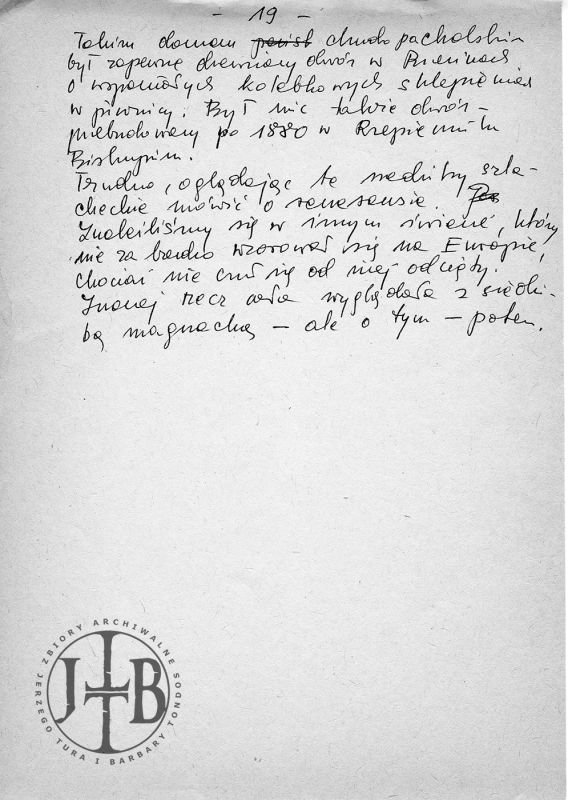 - 19 -
Takim domem chudopacholskim
był zapewne drewniany dwór w Bieśnicach
o wspaniałych kolebkowych sklepieniach
w piwnicy. Był nim także dwór -
przebudowany po 1880 w Rzepienniku
Biskupim.
Trudno, oglądając te siedziby szla-
checkie mówić o renesansie.
Znaleźliśmy się w innym świecie, który
nie za bardzo wzorował się na Europie,
chociaż nie czuł się od niej odcięty.
Inaczej rzecz cała wyglądała z siedzi-
bą magnacką - ale o tym - potem.
ZBIORY ARCHIWALNE
JERZEGO TURA I BARBARY TONDOS
JTB